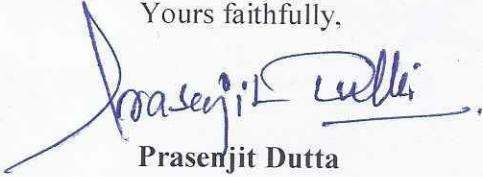 Yours faithfully,
Prasenjit Dutta
Prasenjit Dutta